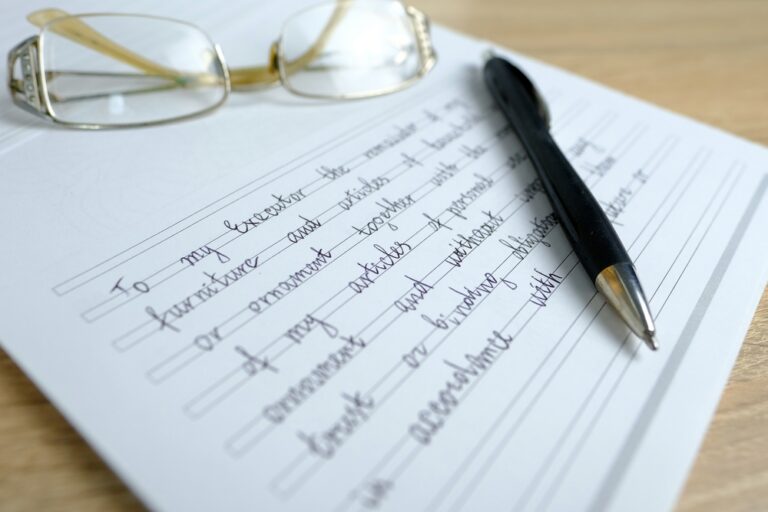 To my Executor the remainder of my
furniture and articles of
or ornament together with the
of my articles of personal
ornament and without
trust or binding obligation
in accordance with